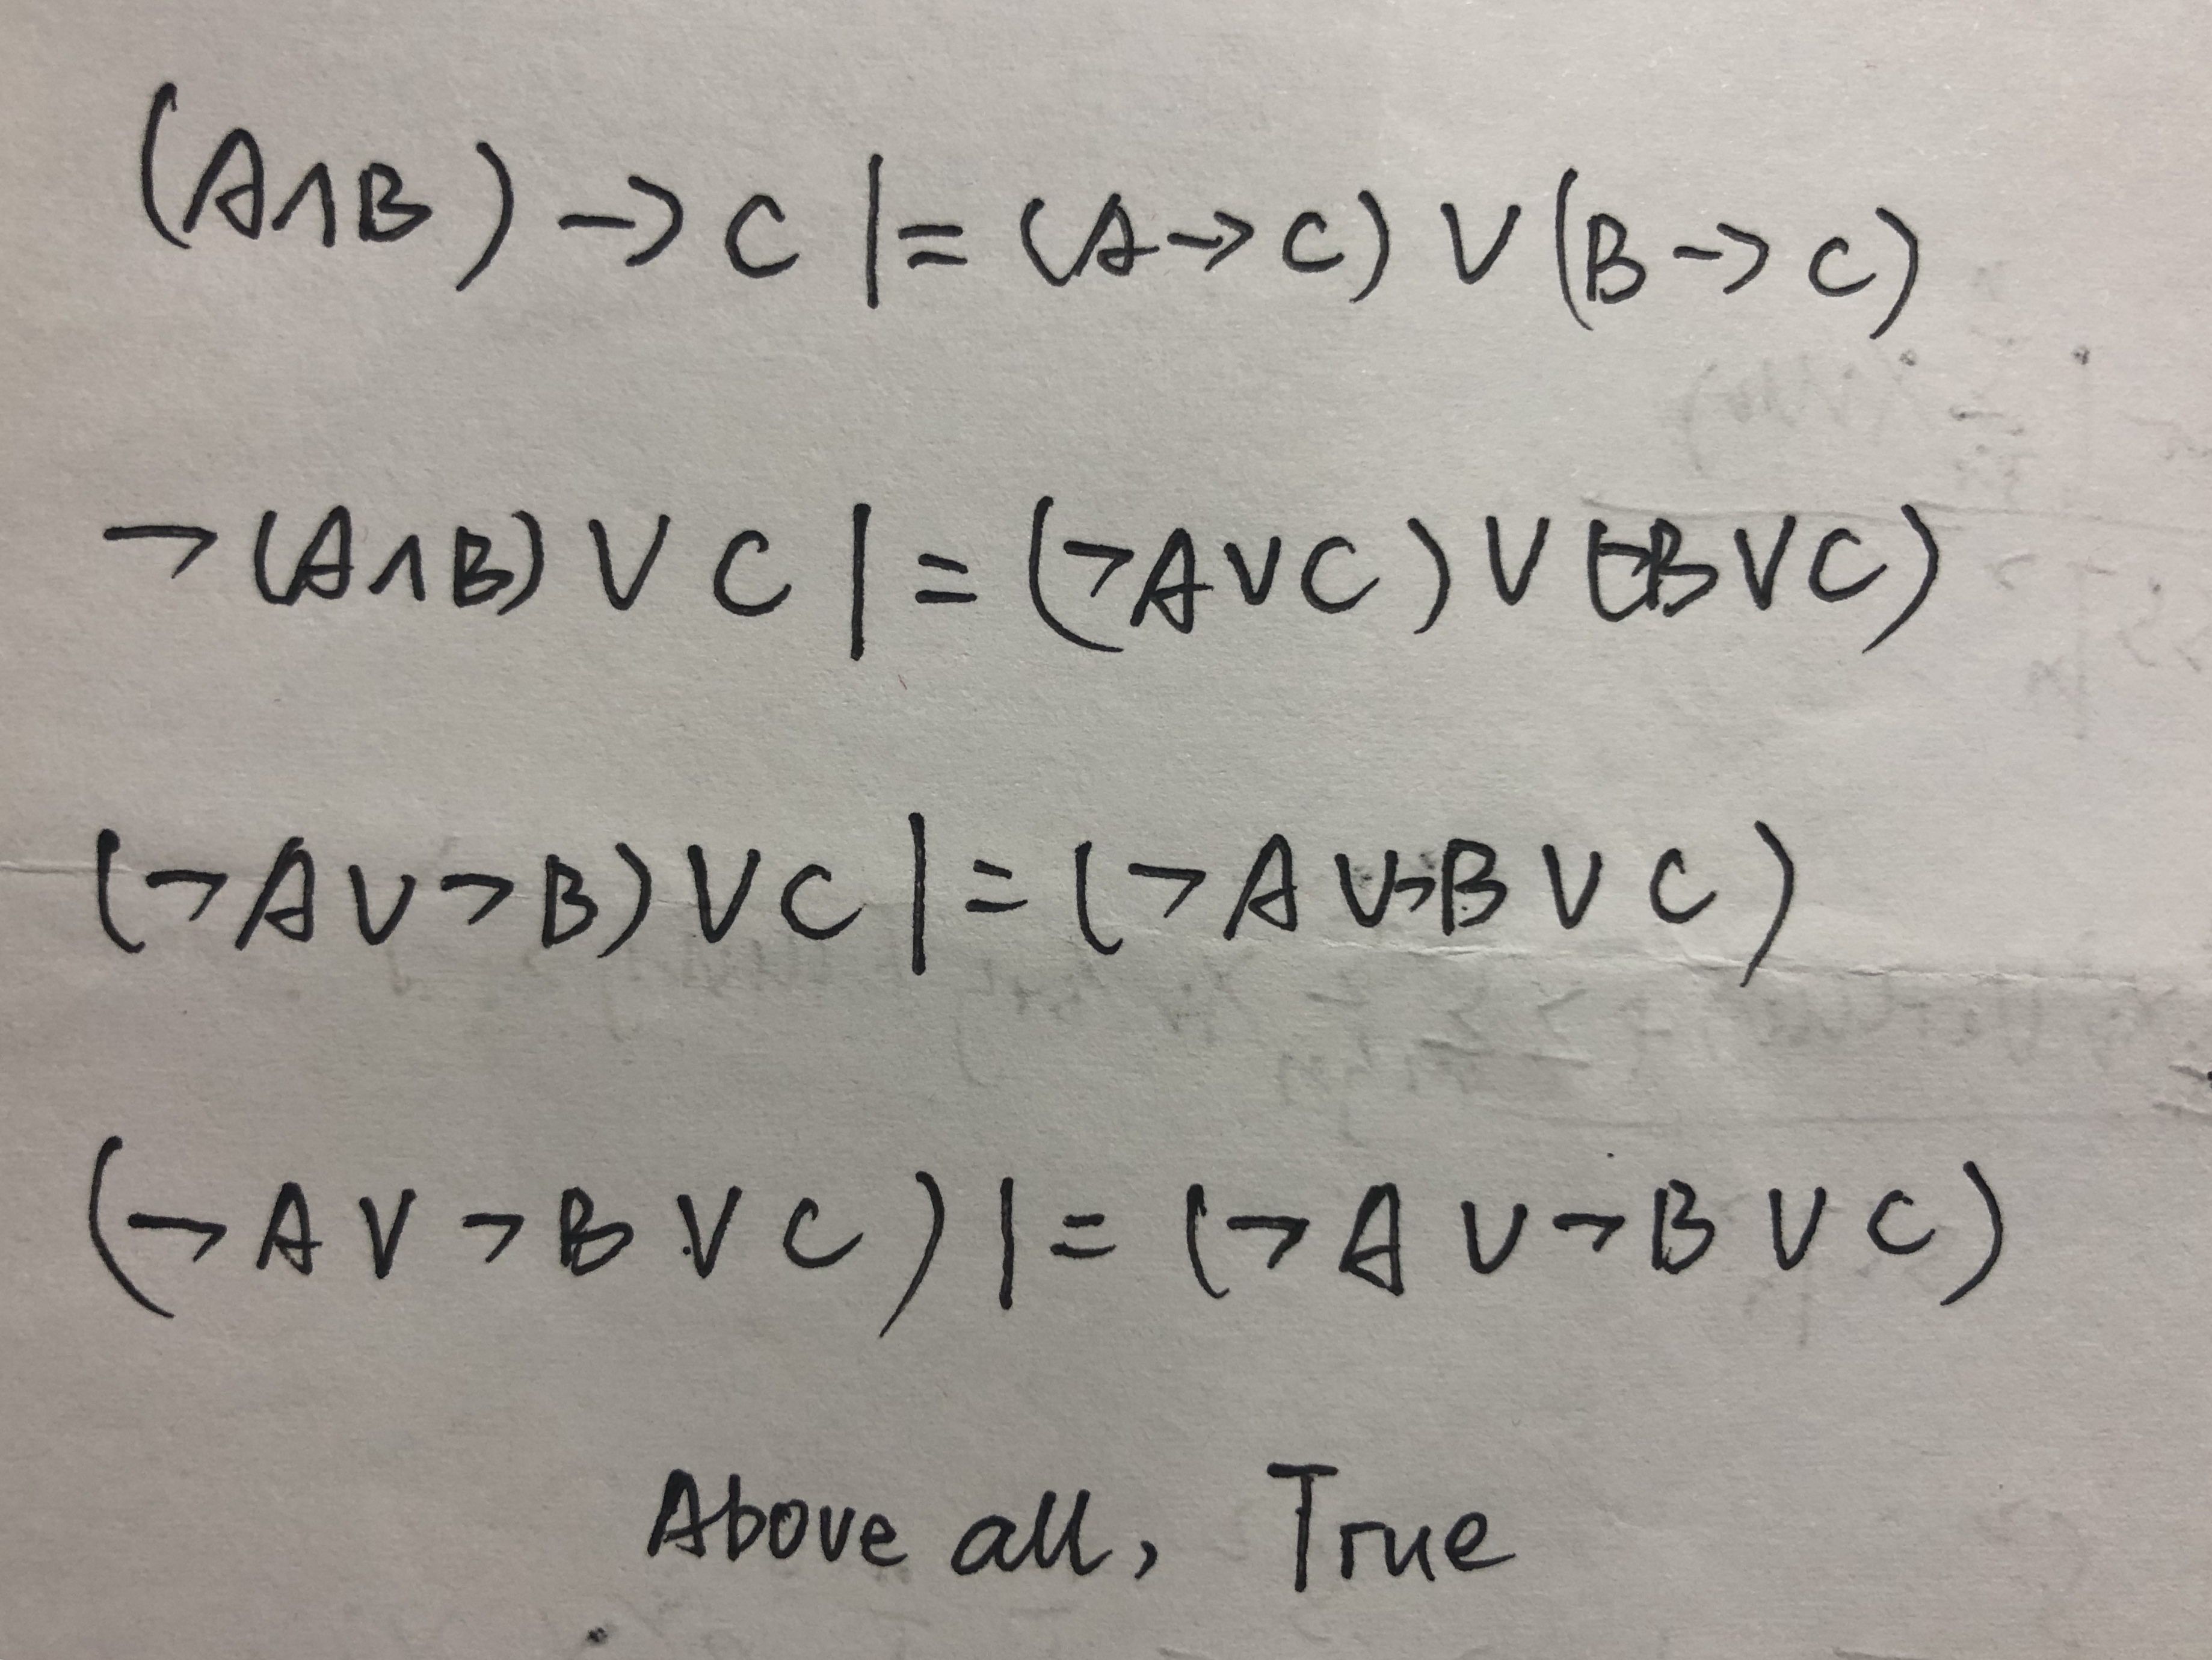 (A∧B) → C |= (A → C) ∨ (B → C)
¬(A∧B) ∨ C |= (¬A∨C) ∨ (¬B∨C)
(¬A∨¬B)∨C |= (¬A∨¬B∨C)
(¬A∨¬B∨C) |= (¬A∨¬B∨C)
Above all, True